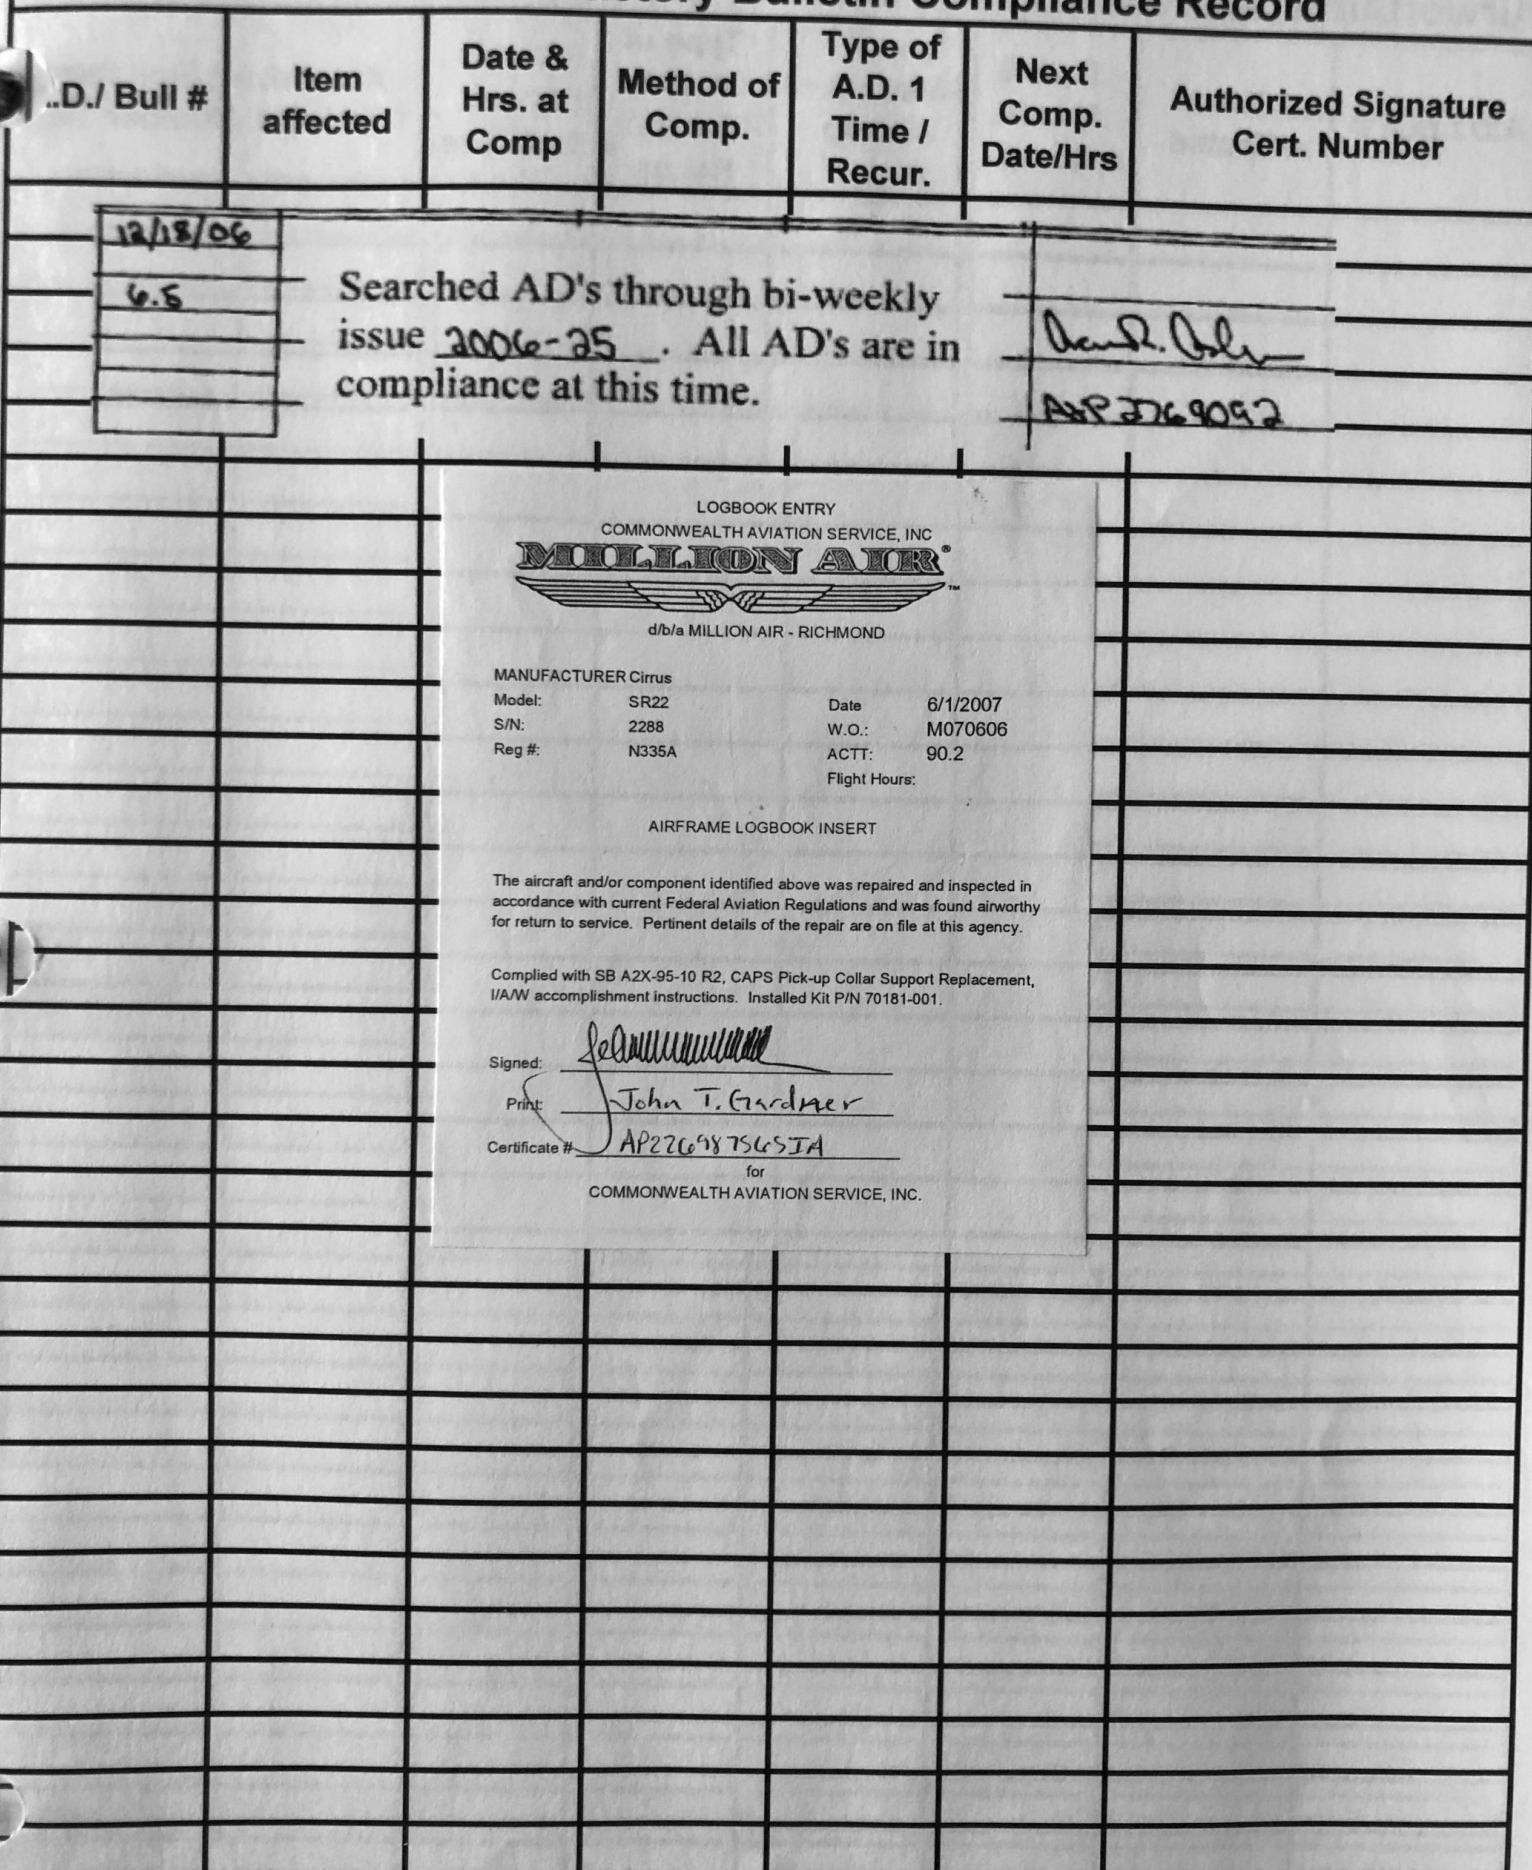 Bulletin Compliance Record
.D./ Bull #
Item
affected
Date &
Hrs. at
Comp
Method of
Comp.
Type of
A.D. 1
Time /
Recur.
Next
Comp.
Date/Hrs
Authorized Signature
Cert. Number
12/18/06
6.5
Searched AD's through bi-weekly
issue 2006-25. All AD's are in
compliance at this time.
A&P 2769092
LOGBOOK ENTRY
COMMONWEALTH AVIATION SERVICE, INC
MILLION AIR®
™
d/b/a MILLION AIR - RICHMOND
MANUFACTURER Cirrus
Model: SR22 Date 6/1/2007
S/N: 2288 W.O.: M070606
Reg #: N335A ACTT: 90.2
Flight Hours:
AIRFRAME LOGBOOK INSERT
The aircraft and/or component identified above was repaired and inspected in
accordance with current Federal Aviation Regulations and was found airworthy
for return to service. Pertinent details of the repair are on file at this agency.
Complied with SB A2X-95-10 R2, CAPS Pick-up Collar Support Replacement,
I/A/W accomplishment instructions. Installed Kit P/N 70181-001.
Signed:
Print: John T. Gardner
Certificate # AP226987565IA
for
COMMONWEALTH AVIATION SERVICE, INC.